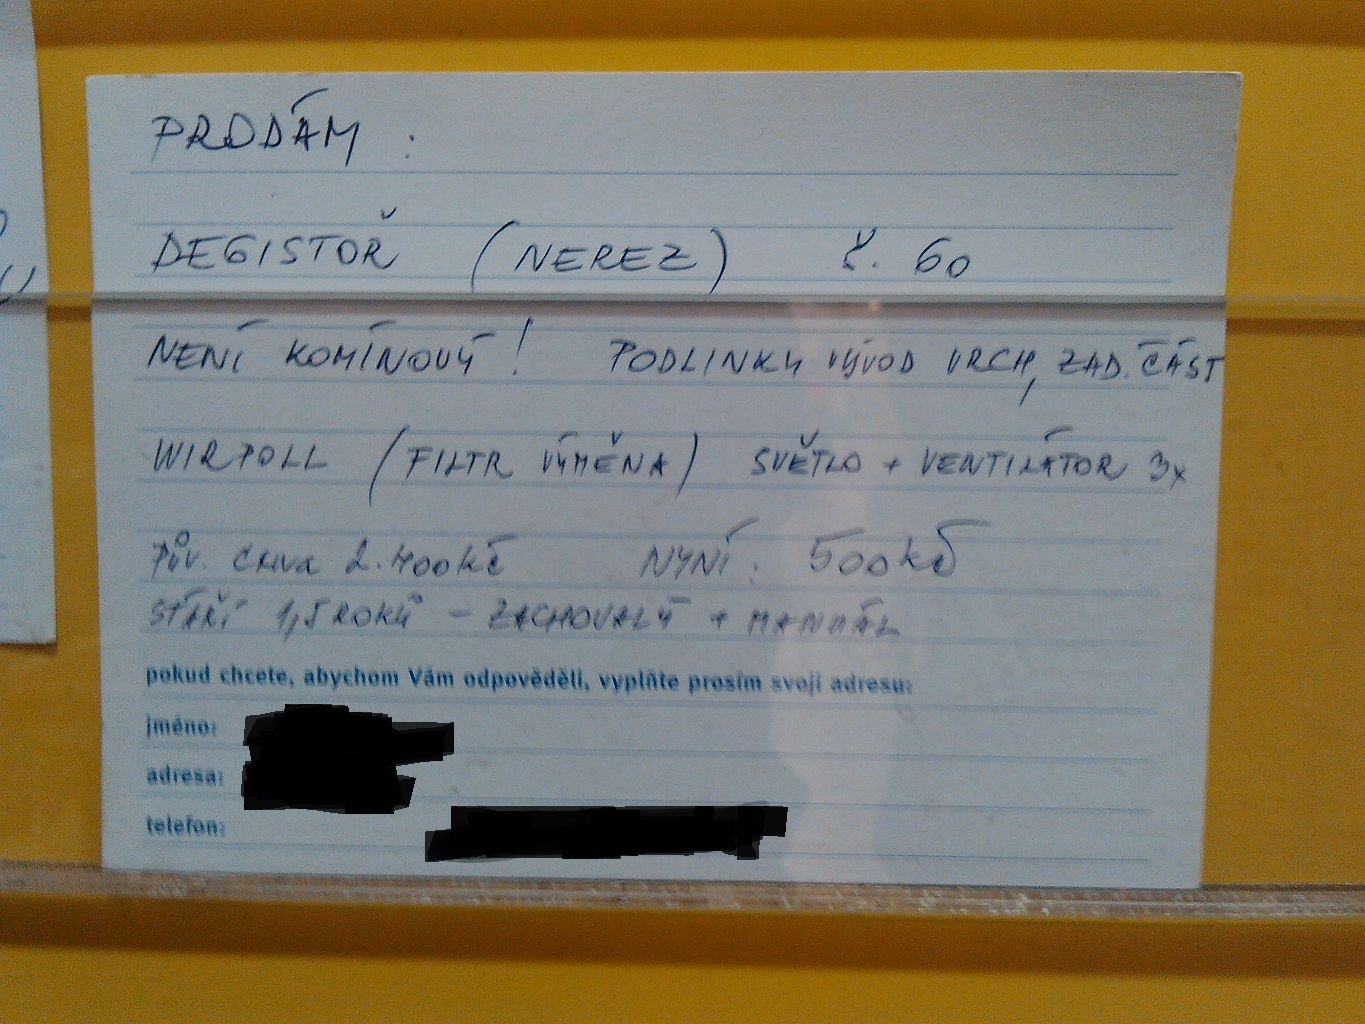 PRODÁM :
DEGISTOŘ (NEREZ) Š. 60
NENÍ KOMÍNOVÝ! PODLINKY VÝVOD VRCH, ZAD. ČÁST
WIRPOLL (FILTR VÝMĚNA) SVĚTLO + VENTILÁTOR 3x
PŮV. CENA 2.400KČ NYNÍ: 500KČ
STÁŘÍ 1,5 ROKŮ - ZACHOVALÝ + MANUÁL
pokud chcete, abychom Vám odpověděli, vyplňte prosím svoji adresu:
jméno:
adresa:
telefon: